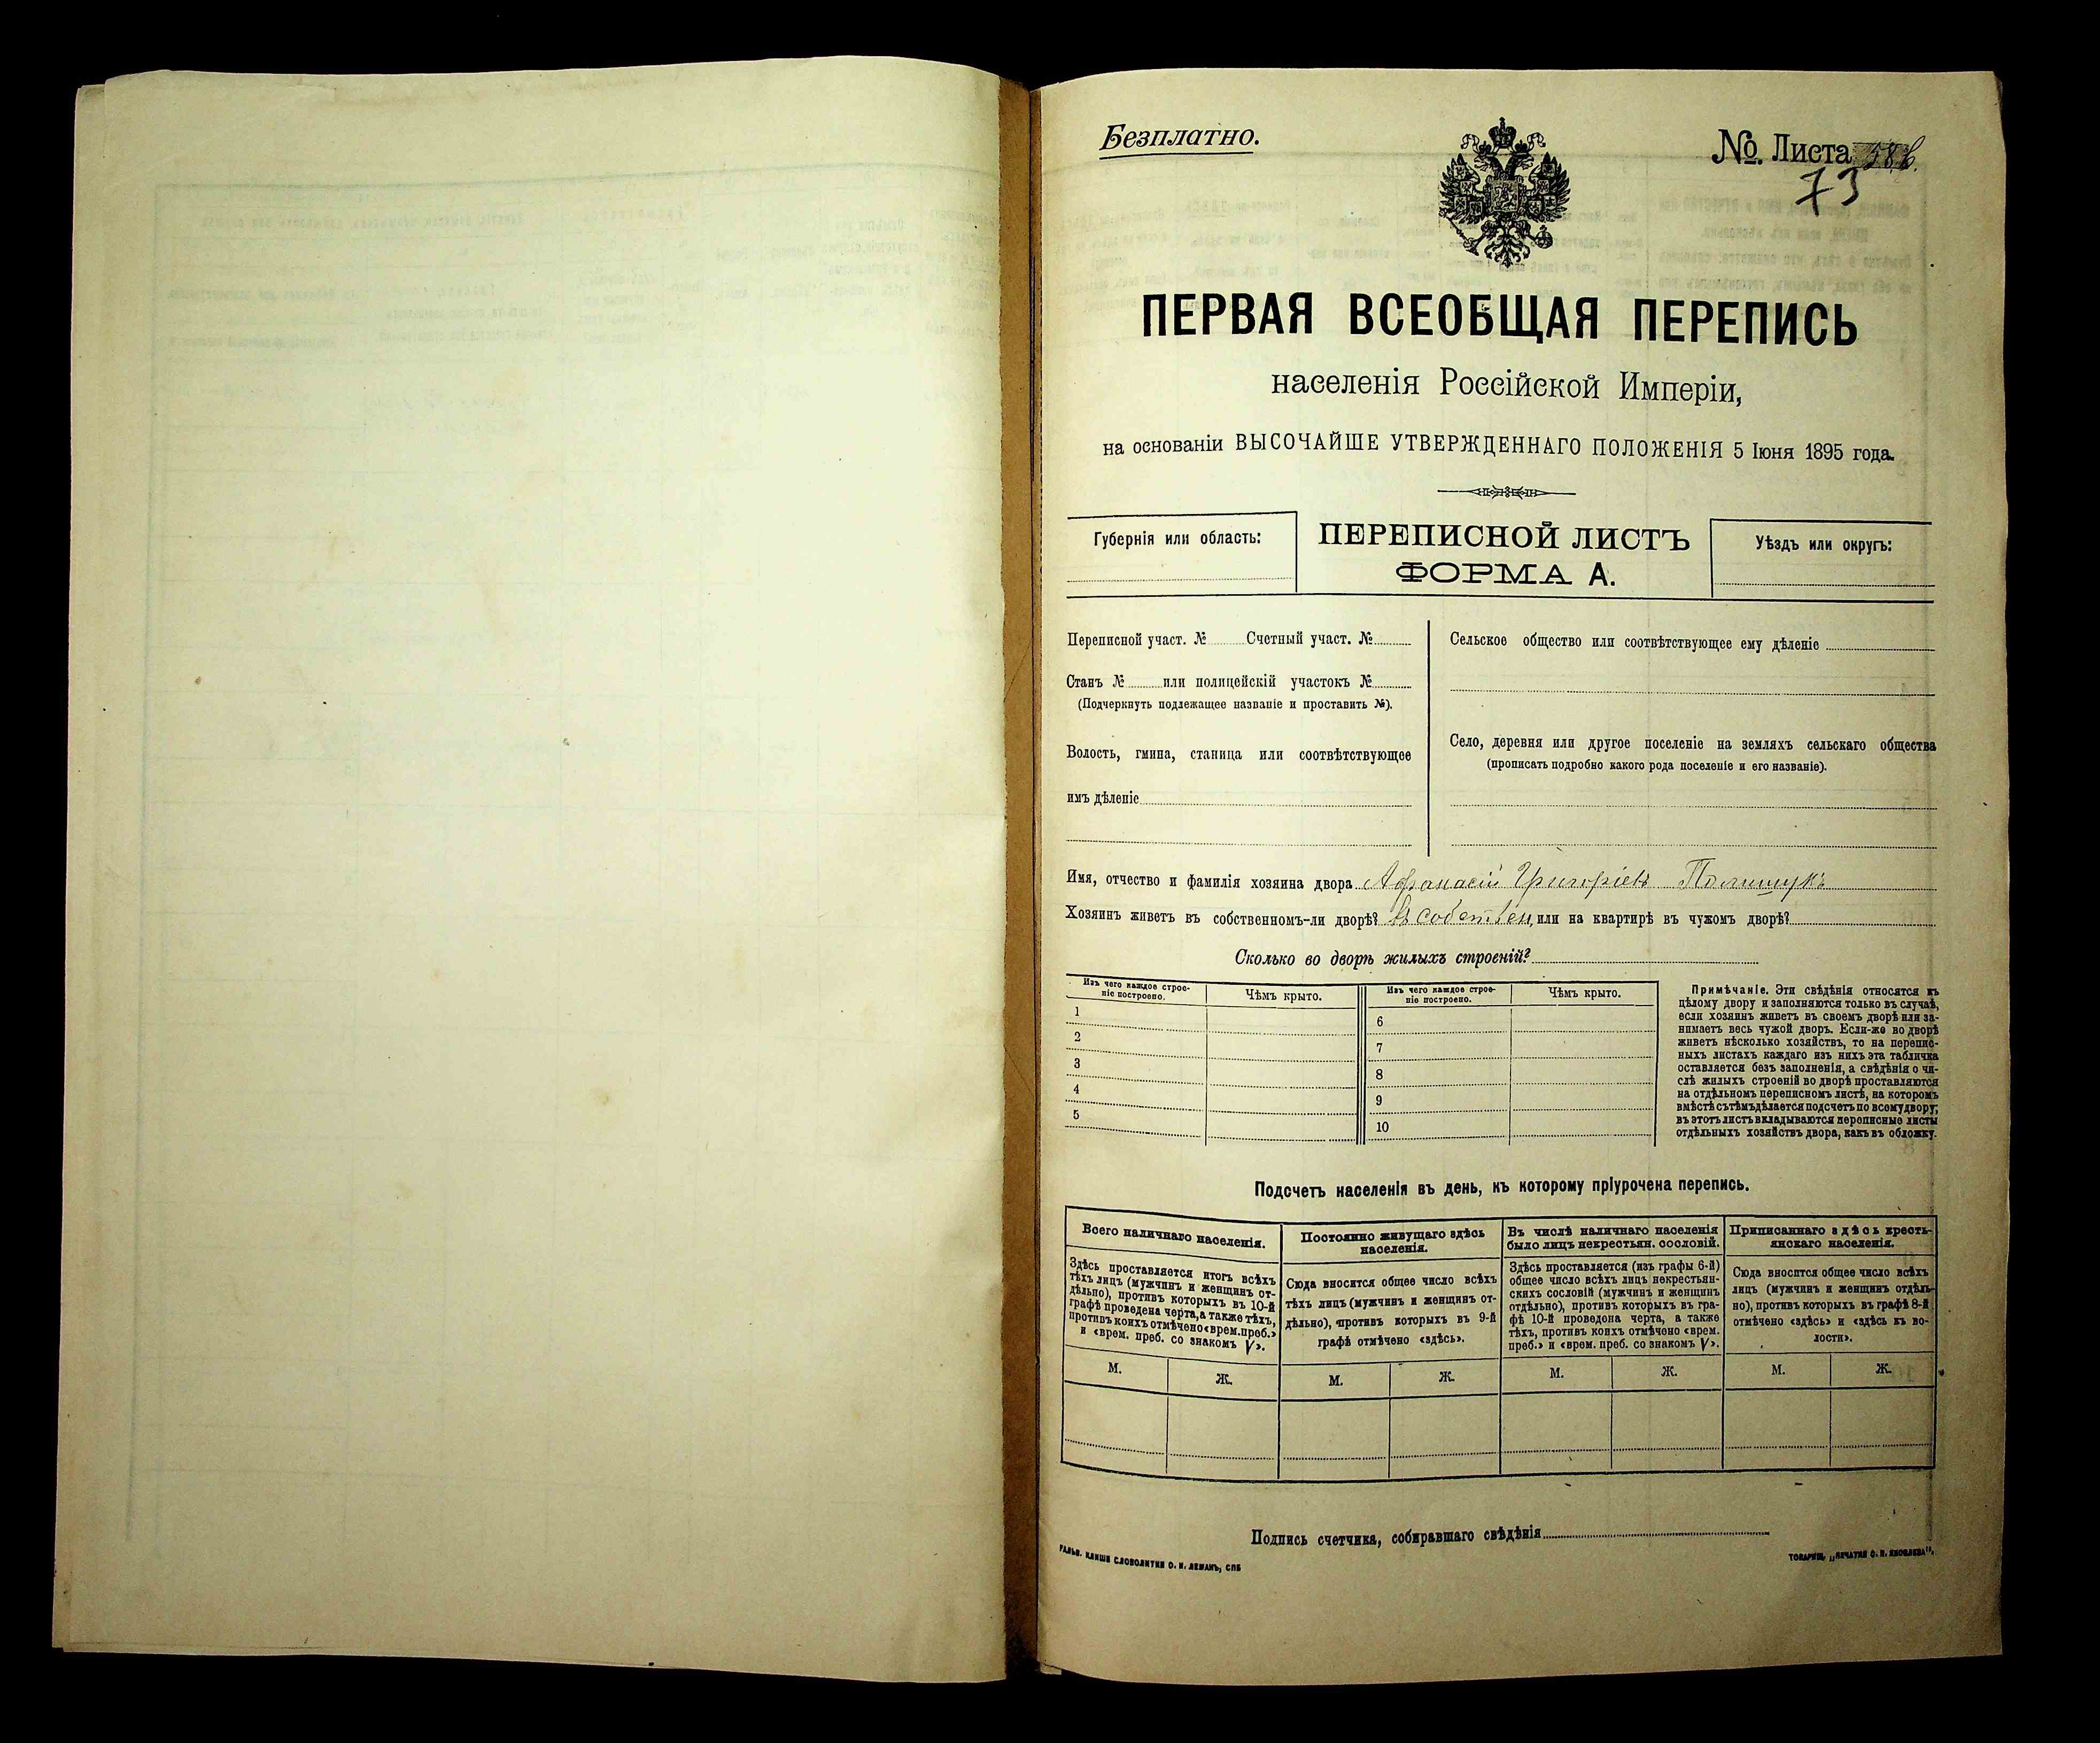 Безплатно.
№. Листа 58 б.
73
ПЕРВАЯ ВСЕОБЩАЯ ПЕРЕПИСЬ
населенія Россійской Имперіи,
на основаніи ВЫСОЧАЙШЕ УТВЕРЖДЕННАГО ПОЛОЖЕНІЯ 5 Іюня 1895 года.
Губернія или область:
ПЕРЕПИСНОЙ ЛИСТЪ
ФОРМА А.
Уѣздъ или округъ:
Переписной участ. № Счетный участ. №
Станъ № или полицейскій участокъ №
(Подчеркнуть подлежащее названіе и проставить №).
Волость, гмина, станица или соотвѣтствующее
имъ дѣленіе
Сельское общество или соотвѣтствующее ему дѣленіе
Село, деревня или другое поселеніе на земляхъ сельскаго общества
(прописать подробно какого рода поселеніе и его названіе).
Имя, отчество и фамилія хозяина двора Афанасій Григоріевъ Полищукъ
Хозяинъ живетъ въ собственномъ-ли дворѣ? въ собствен, или на квартирѣ въ чужомъ дворѣ?
Сколько во дворѣ жилыхъ строеній?
Изъ чего каждое строе-
ніе построено.
Чѣмъ крыто.
1
2
3
4
5
Изъ чего каждое строе-
ніе построено.
Чѣмъ крыто.
6
7
8
9
10
Примѣчаніе. Эти свѣдѣнія относятся къ
цѣлому двору и заполняются только въ случаѣ,
если хозяинъ живетъ въ своемъ дворѣ или за-
нимаетъ весь чужой дворъ. Если-же во дворѣ
живетъ нѣсколько хозяйствъ, то на перепис-
ныхъ листахъ каждаго изъ нихъ эта табличка
оставляется безъ заполненія, а свѣдѣнія о чи-
слѣ жилыхъ строеній во дворѣ проставляются
на отдѣльномъ переписномъ листѣ, на которомъ
вмѣстѣ съ тѣмъ дѣлается подсчетъ по всему двору;
въ этотъ листъ вкладываются переписные листы
отдѣльныхъ хозяйствъ двора, какъ въ обложку.
Подсчетъ населенія въ день, къ которому пріурочена перепись.
Всего наличнаго населенія.
Здѣсь проставляется итогъ всѣхъ
тѣхъ лицъ (мужчинъ и женщинъ от-
дѣльно), противъ которыхъ въ 10-й
графѣ проведена черта, а также тѣхъ,
противъ коихъ отмѣчено «врем. преб.»
и «врем. преб. со знакомъ V».
М.
Ж.
Постоянно живущаго здѣсь
населенія.
Сюда вносится общее число всѣхъ
тѣхъ лицъ (мужчинъ и женщинъ от-
дѣльно), противъ которыхъ въ 9-й
графѣ отмѣчено «здѣсь».
М.
Ж.
Въ числѣ наличнаго населенія
было лицъ некрестьян. сословій.
Здѣсь проставляется (изъ графы 6-й)
общее число всѣхъ лицъ некрестьян-
скихъ сословій (мужчинъ и женщинъ
отдѣльно), противъ которыхъ въ гра-
фѣ 10-й проведена черта, а также
тѣхъ, противъ коихъ отмѣчено «врем.
преб.» и «врем. преб. со знакомъ V».
М.
Ж.
Приписаннаго здѣсь кресть-
янскаго населенія.
Сюда вносится общее число всѣхъ
лицъ (мужчинъ и женщинъ отдѣль-
но), противъ которыхъ въ графѣ 8-й
отмѣчено «здѣсь» и «здѣсь къ во-
лости».
М.
Ж.
Подпись счетчика, собиравшаго свѣдѣнія
ГАЛЬВ. КЛИШЕ СЛОВОЛИТНИ О. И. ЛЕМАНЪ, СПБ
ТОВАРИЩ. „ПЕЧАТНЯ С. П. ЯКОВЛЕВА".